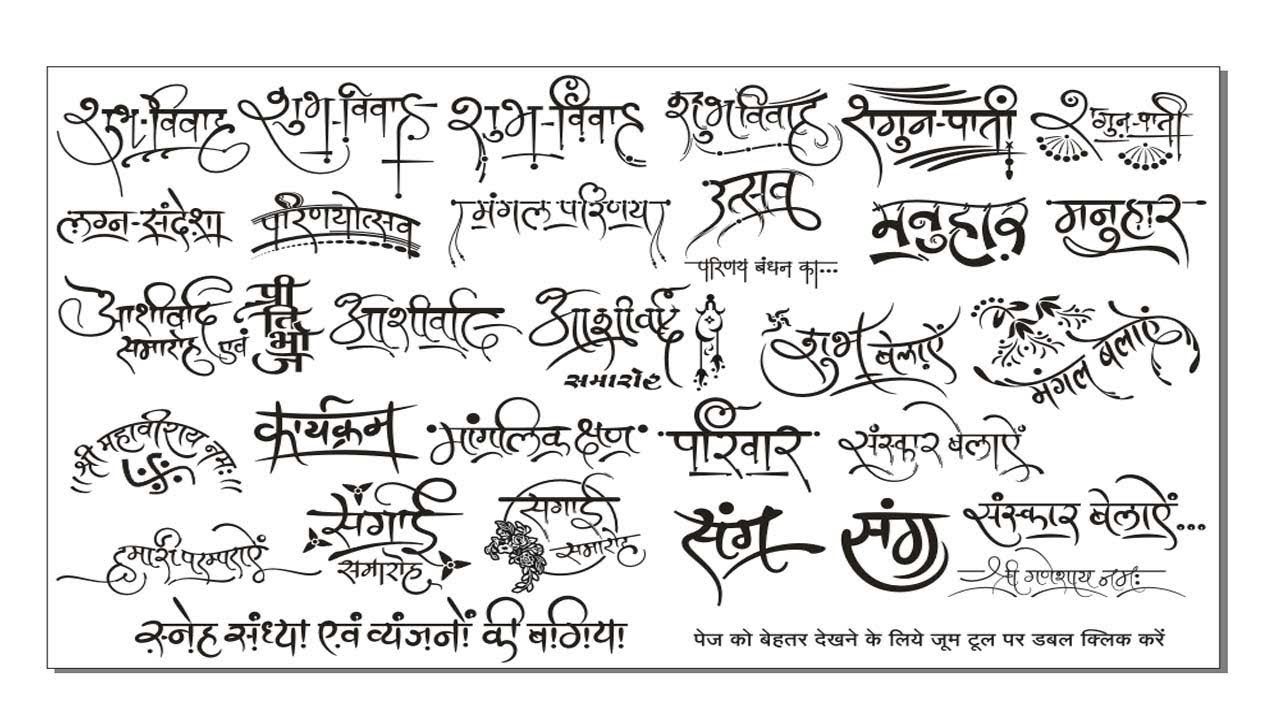 शुभ-विवाह शुभ-विवाह शुभ-विवाह शुभ विवाह शगुन-पाती शगुन-पाती
लग्न-संदेशा परिणयोत्सव मंगल परिणय उत्सव मनुहार मनुहार
परिणय बंधन का...
आशीर्वाद समारोह एवं प्रीतिभोज आशीर्वाद आशीर्वाद समारोह शुभ बेलाऐं मंगल बेलाऐं
श्री महावीराय नमः कार्यक्रम मांगलिक क्षण परिवार संस्कार बेलाऐं
हमारी परम्पराऐं सगाई समारोह सगाई समारोह संग संग संस्कार बेलाऐं...
श्री गणेशाय नमः
स्नेह संध्या एवं व्यंजनों की बगिया
पेज को बेहतर देखने के लिये जूम टूल पर डबल क्लिक करें